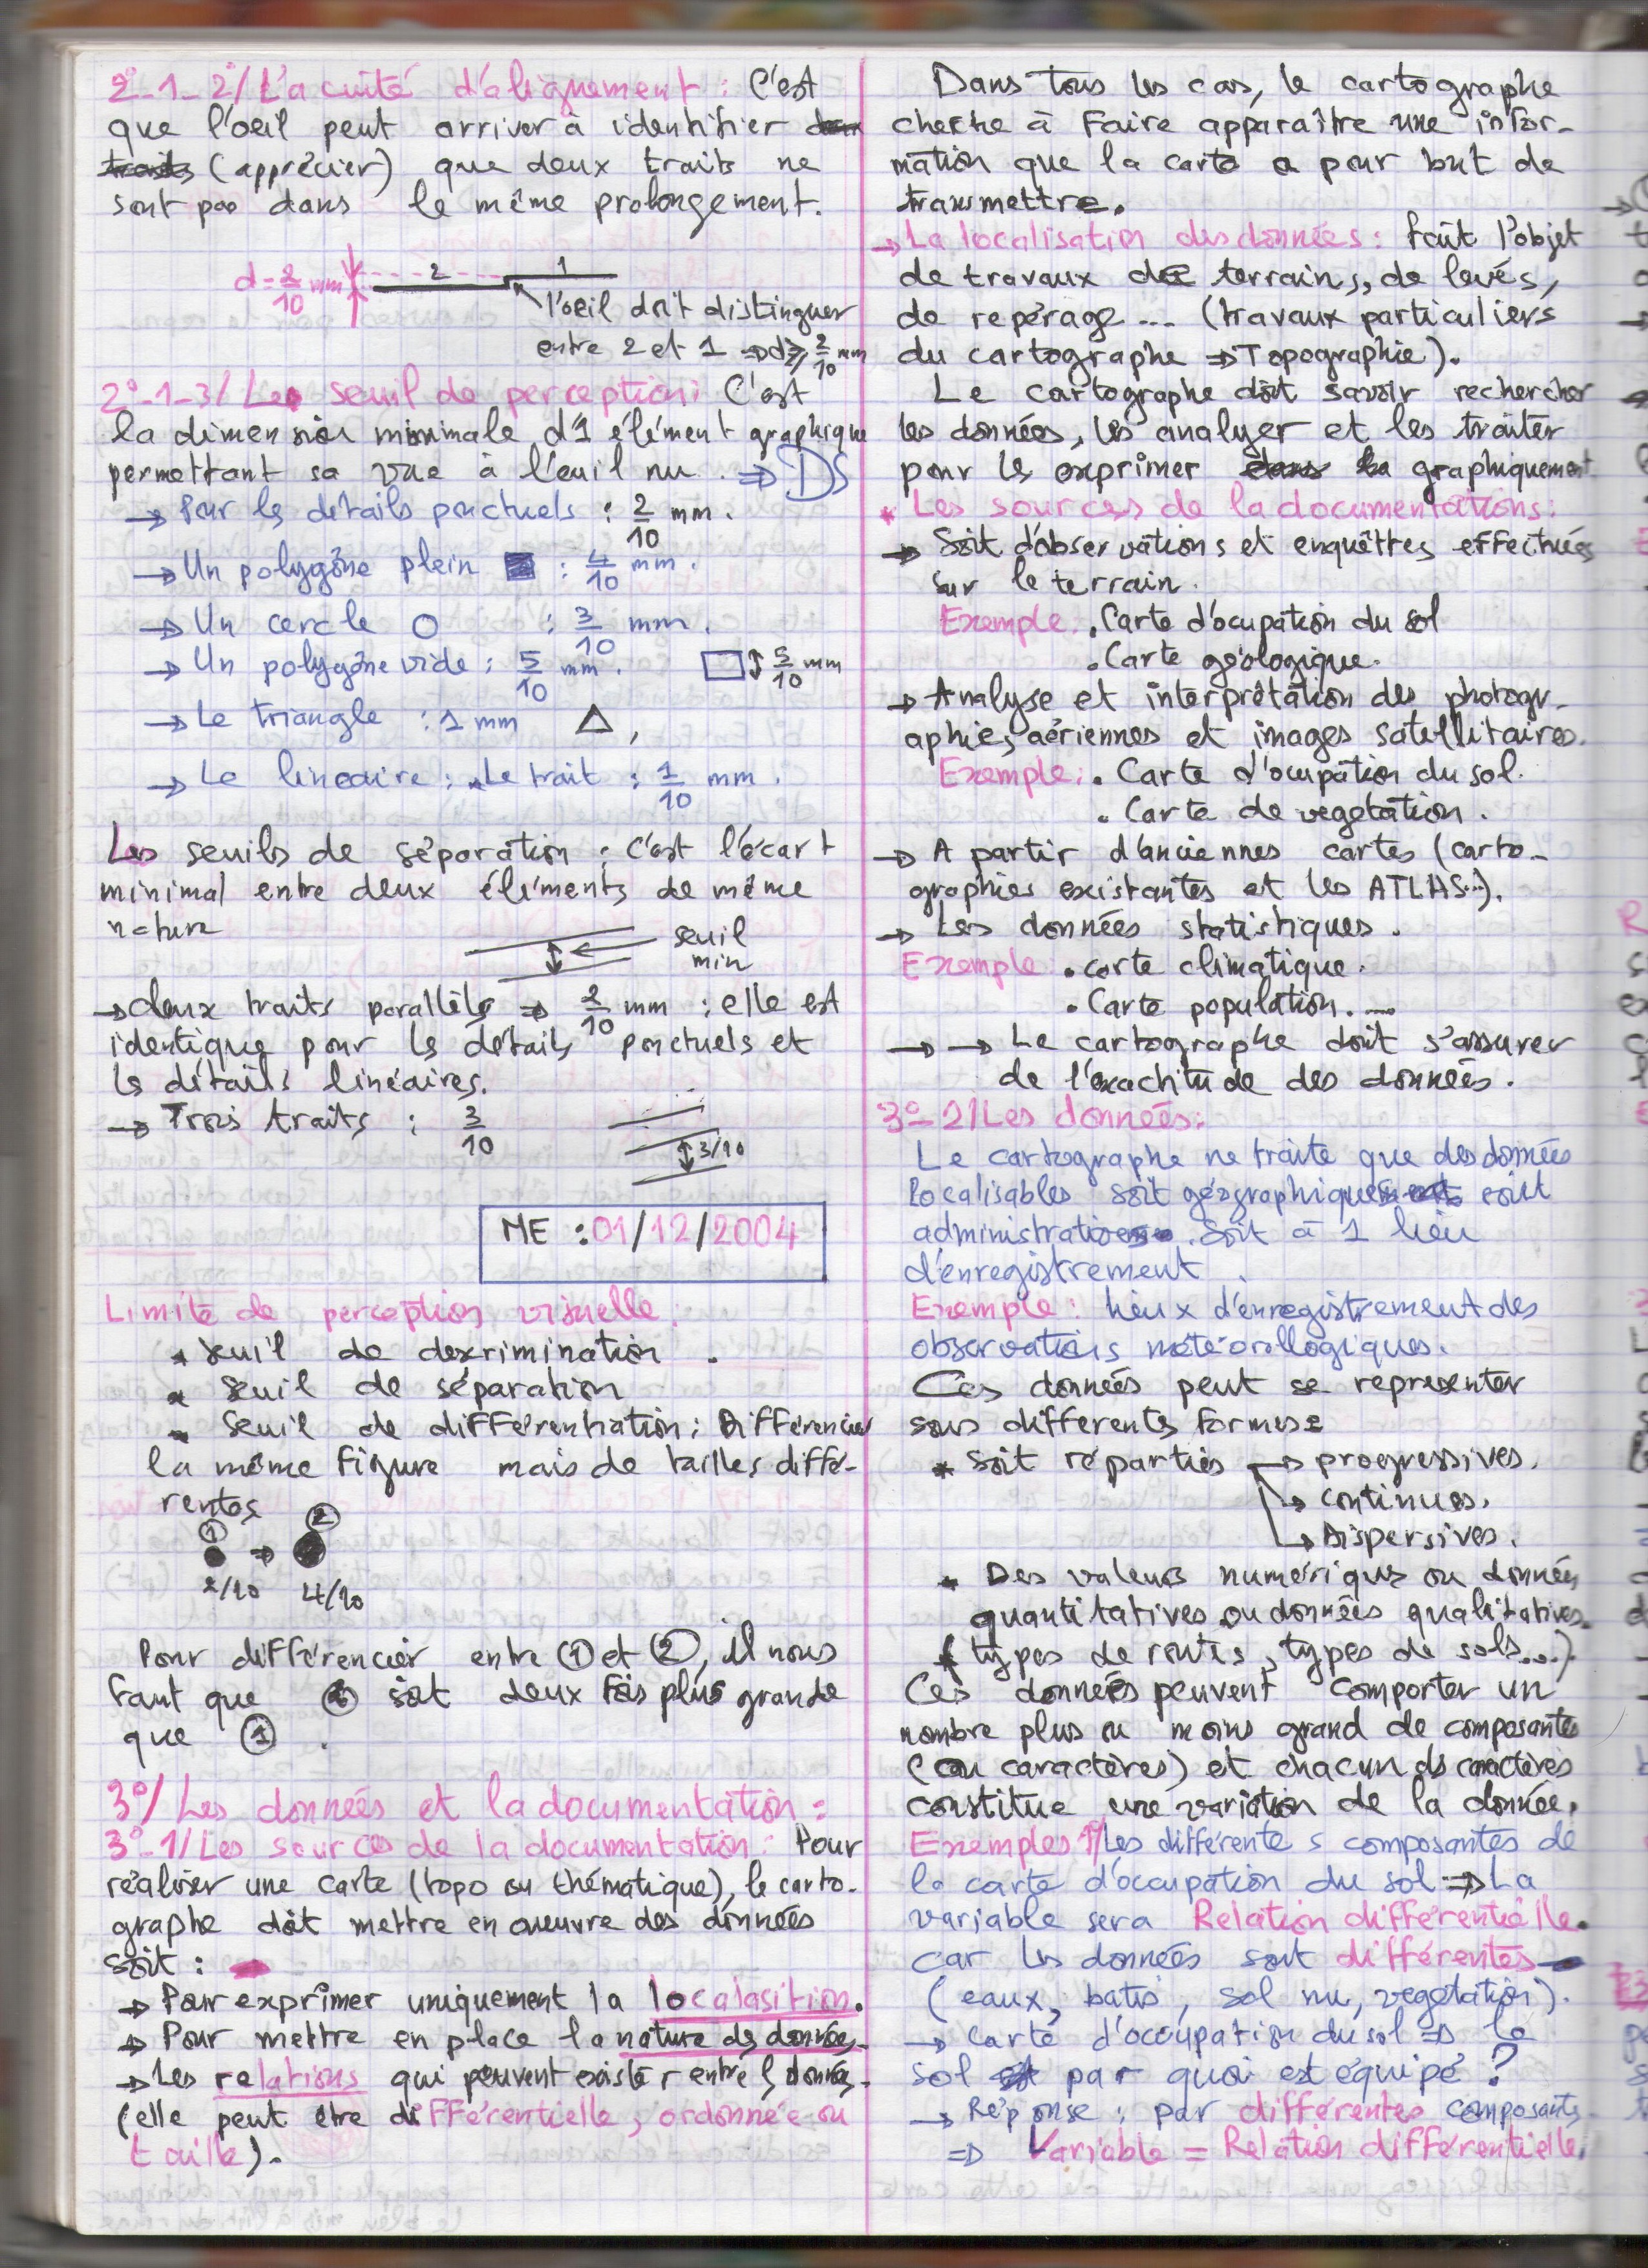 2°-1-2°/ L'acuité d'alignement : C'est
que l'oeil peut arriver à identifier deux
traits (apprécier) que deux traits ne
sont pas dans le même prolongement.
d=2/10 mm 2 1
l'oeil doit distinguer
entre 2 et 1 ⇒ d≥ 2/10 mm
2°-1-3/ Le seuil de perception: C'est
la dimension minimale d'1 élément graphique
permettant sa vue à l'euil nu. ⇒ DS
→ Pour les détails ponctuels : 2/10 mm.
→ Un polygône plein : 4/10 mm.
→ Un cercle : 3/10 mm.
→ Un polygône vide : 5/10 mm. 5/10 mm
→ Le triangle : 1 mm
→ Le lineaire : Le trait : 1/10 mm.
Les seuils de séparation : C'est l'écart
minimal entre deux éléments de même
nature
seuil
min
→ deux traits parallèls ⇒ 2/10 mm : elle est
identique pour les détails ponctuels et
les détails linéaires.
→ Trois traits : 3/10
3/10
ME : 01/12/2004
Limite de perception visuelle.
* seuil de descrimination.
* seuil de séparation
* seuil de différentiation : Différencier
la même figure mais de tailles diffé-
rentes
① ②
⇒
2/10 4/10
Pour différencier entre ① et ②, il nous
faut que ② soit deux fois plus grande
que ①.
3°/ Les données et la documentation :
3°-1/ Les sources de la documentation : Pour
réaliser une carte (topo ou thématique), le carto-
graphe doit mettre en oeuvre des données
soit :
→ Pour exprimer uniquement la localasition.
→ Pour mettre en place la nature des données.
→ Les relations qui peuvent exister entre les données.
(elle peut être différentielle, ordonnée ou
taille).
Dans tous les cas, le cartographe
cherche à Faire apparaître une infor-
mation que la carte a pour but de
transmettre.
→ La localisation des données : fait l'objet
de travaux de terrains, de levés,
de repérage... (travaux particuliers
du cartographe ⇒ Topographie).
Le cartographe doit savoir rechercher
les données, les analyser et les traiter
pour les exprimer dans la graphiquement
* Les sources de la documentations :
→ Soit d'observations et enquêttes effectués
sur le terrain.
Exemple : . Carte d'ocupation du sol
. Carte géologique.
→ Analyse et interprêtation des photogr-
aphies aériennes et images satellitaires.
Exemple : . Carte d'ocupation du sol.
. Carte de vegetation.
→ A partir d'anciennes cartes (carto-
graphies existantes et les ATLAS...).
→ Les données statistiques.
Exemple : . carte climatique.
. Carte population. ...
→ → Le cartographe doit s'assurer
de l'exactitude des données.
3°-2/ Les données :
Le cartographe ne traite que des données
localisables soit géographiques soit
administratives. Soit à 1 lieu
d'enregistrement.
Exemple : lieux d'enregistrement des
observations météorollogiques.
Ces données peut se representer
sous differents formes :
* Soit réparties → progressives.
→ continues.
→ Dispersives.
* Des valeurs numériques ou données
quantitatives ou données qualitatives.
(types de routes, types de sols...).
Ces données peuvent comporter un
nombre plus ou moins grand de composantes
(ou caractères) et chacun des caractères
constitue une variation de la donnée.
Exemples 1°/ Les différentes composantes de
la carte d'occupation du sol ⇒ La
variable sera Relation différentielle.
car les données sont différentes
(eaux, batis, sol nu, vegetation).
→ Carte d'occupation du sol ⇒ le
sol est par quoi est équipé ?
→ Réponse : par différentes composants.
⇒ Variable = Relation différentielle.